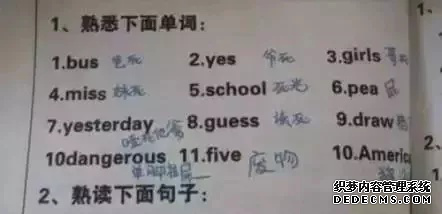 1、熟悉下面单词:
1.bus 爸死 2.yes 爷死 3.girls 哥
4.miss 妹死 5.school 死光 6.pea 屁
7.yesterday 8.guess 该死 9.draw
10dangerous 11.five 废物 10.Americ
单脚拉屎
2、熟读下面句子:
织梦内容管理系统
DEDECMS.COM